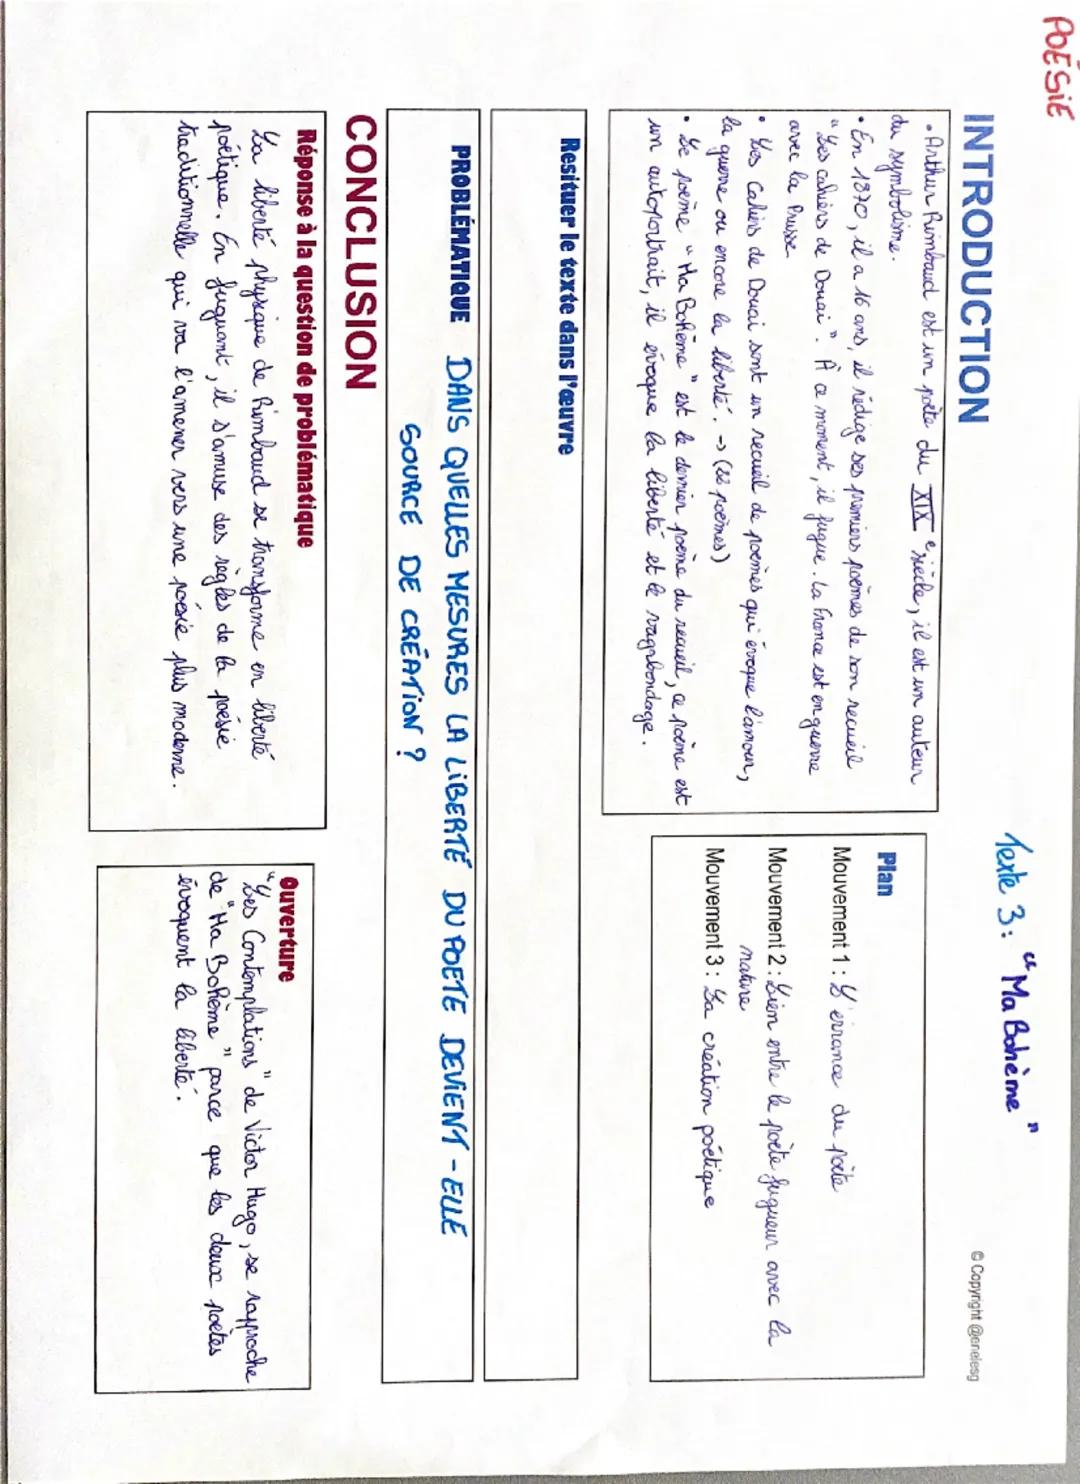 POÉSIE
Texte 3: "Ma Bohème"
© Copyright @enelesg
INTRODUCTION
• Arthur Rimbaud est un poète du XIXe siècle, il est un auteur
du symbolisme.
• En 1870, il a 16 ans, il rédige ses premiers poèmes de son recueil
"Les cahiers de Douai". À ce moment, il fugue. La France est en guerre
avec la Prusse.
• Les Cahiers de Douai sont un recueil de poèmes qui évoque l'amour,
la guerre ou encore la liberté. -> (22 poèmes)
• Le poème "Ma Bohème" est le dernier poème du recueil, ce poème est
un autoportrait, il évoque la liberté et le vagabondage.
Plan
Mouvement 1 : L'errance du poète
Mouvement 2 : Lien entre le poète fugueur avec la
nature
Mouvement 3 : La création poétique
Resituer le texte dans l'œuvre
PROBLÉMATIQUE DANS QUELLES MESURES LA LIBERTÉ DU POETE DEVIENT-ELLE
SOURCE DE CRÉATION ?
CONCLUSION
Réponse à la question de problématique
La liberté physique de Rimbaud se transforme en liberté
poétique. En fuguant, il s'amuse des règles de la poésie
traditionnelle qui va l'amener vers une poésie plus moderne.
Ouverture
"Les Contemplations" de Victor Hugo, se rapproche
de "Ma Bohème" parce que les deux poètes
évoquent la liberté.